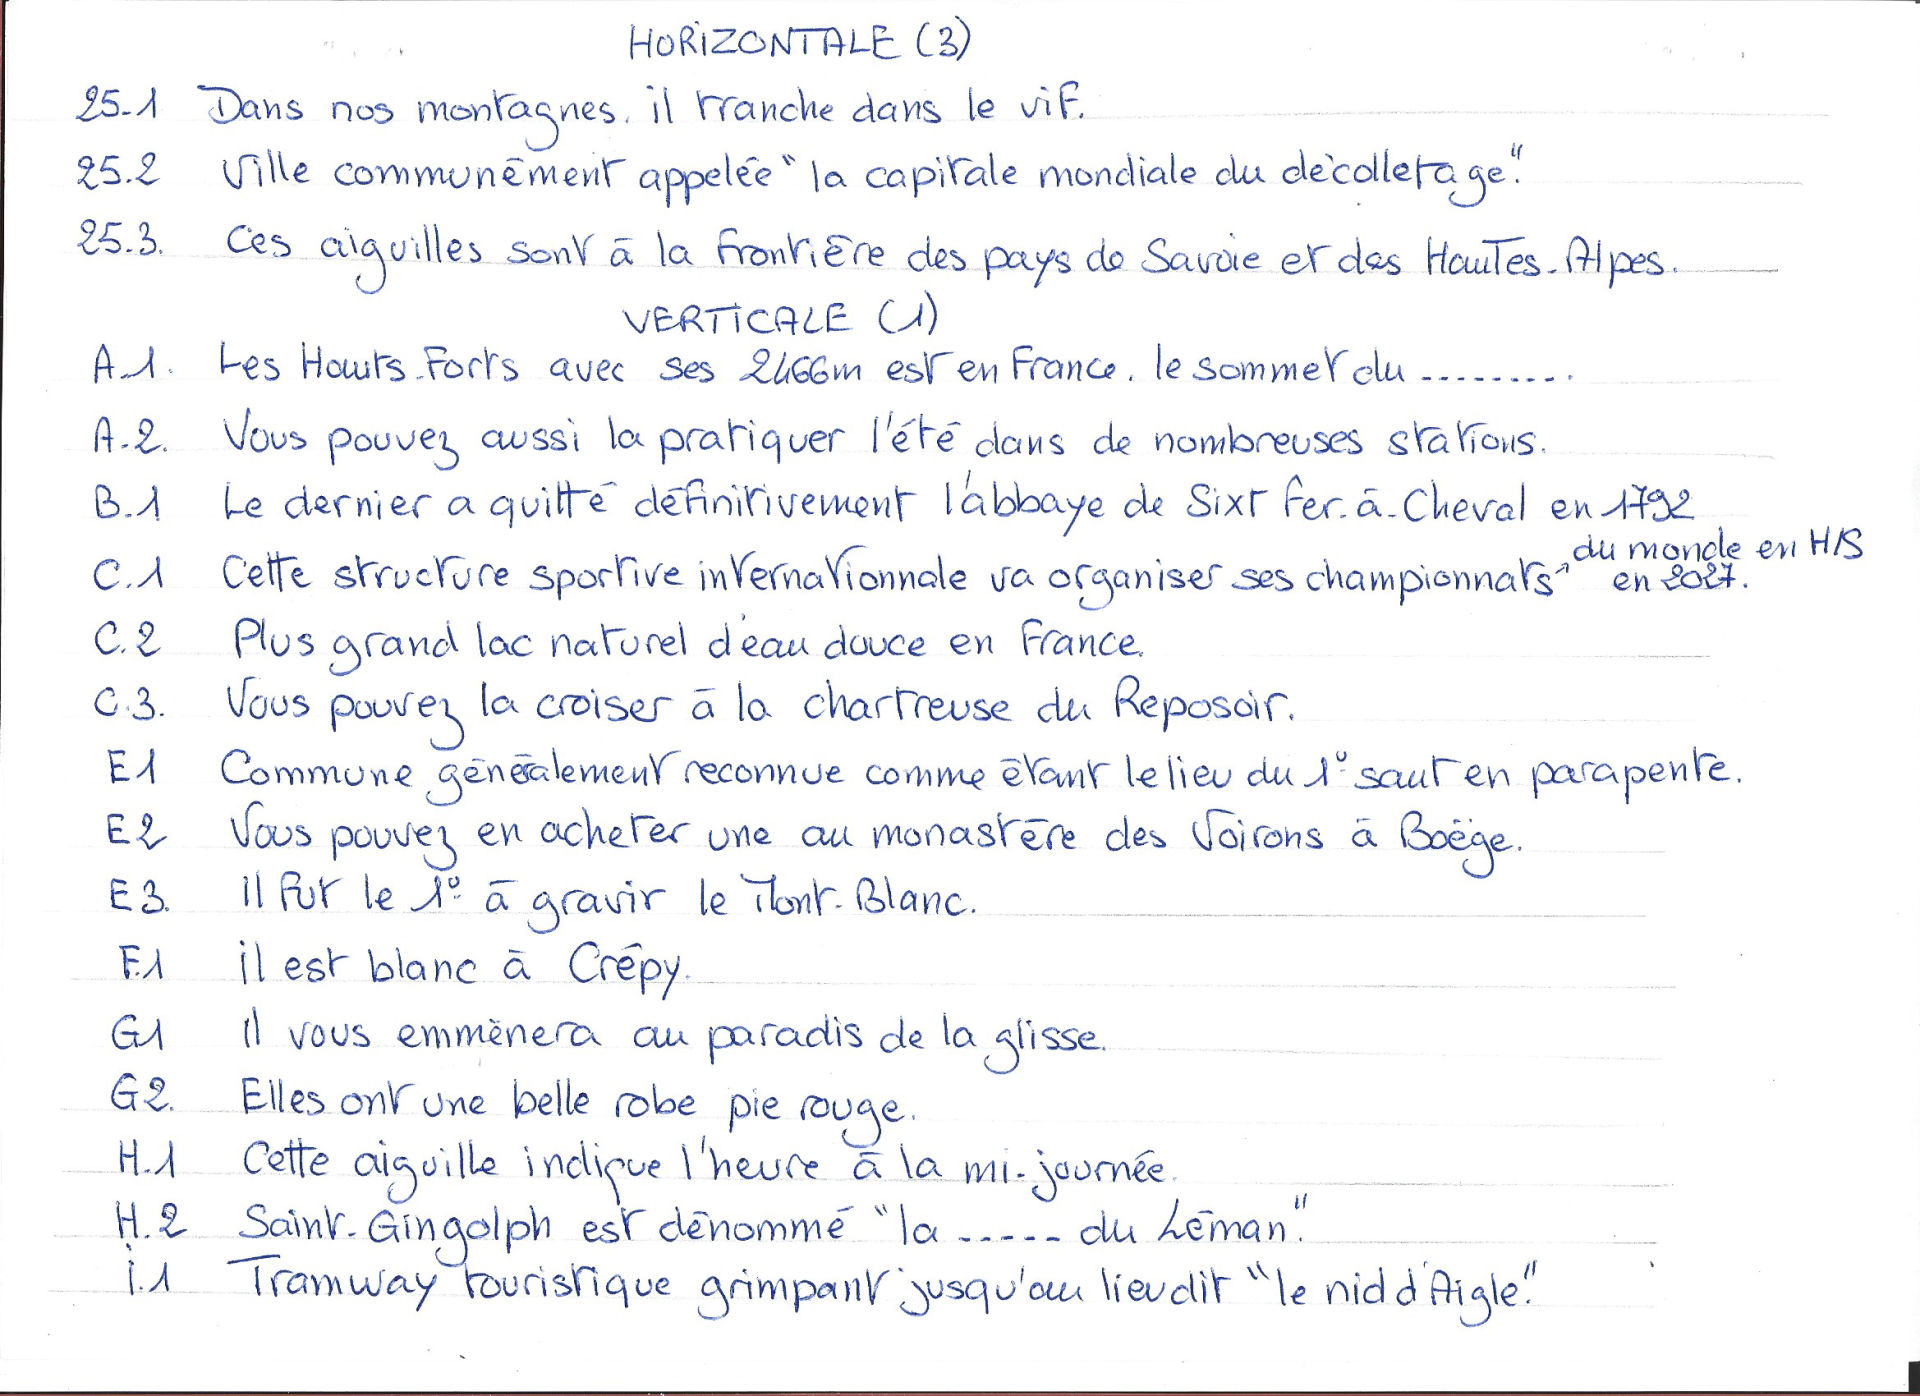 HORIZONTALE (3)
25.1 Dans nos montagnes, il tranche dans le vif.
25.2 Ville communément appelée "la capitale mondiale du décolletage".
25.3. Ces aiguilles sont à la frontière des pays de Savoie et des Hautes-Alpes.
VERTICALE (1)
A.1. Les Hauts-Forts avec ses 2466m est en France, le sommet du .........
A.2. Vous pouvez aussi la pratiquer l'été dans de nombreuses stations.
B.1 Le dernier a quitté définitivement l'abbaye de Sixt fer-à-Cheval en 1792
C.1 Cette structure sportive internationnale va organiser ses championnats du monde en H/S en 2027.
C.2 Plus grand lac naturel d'eau douce en France.
C.3. Vous pouvez la croiser à la chartreuse du Reposoir.
E1 Commune généralement reconnue comme étant le lieu du 1° saut en parapente.
E2 Vous pouvez en acheter une au monastère des Voirons à Boëge.
E3. il fut le 1° à gravir le Mont-Blanc.
F.1 il est blanc à Crépy.
G1 il vous emmènera au paradis de la glisse.
G2. Elles ont une belle robe pie rouge.
H.1 Cette aiguille indique l'heure à la mi-journée.
H.2 Saint-Gingolph est dénommé "la ..... du Léman".
i.1 Tramway touristique grimpant jusqu'au lieudit "le nid d'Aigle".